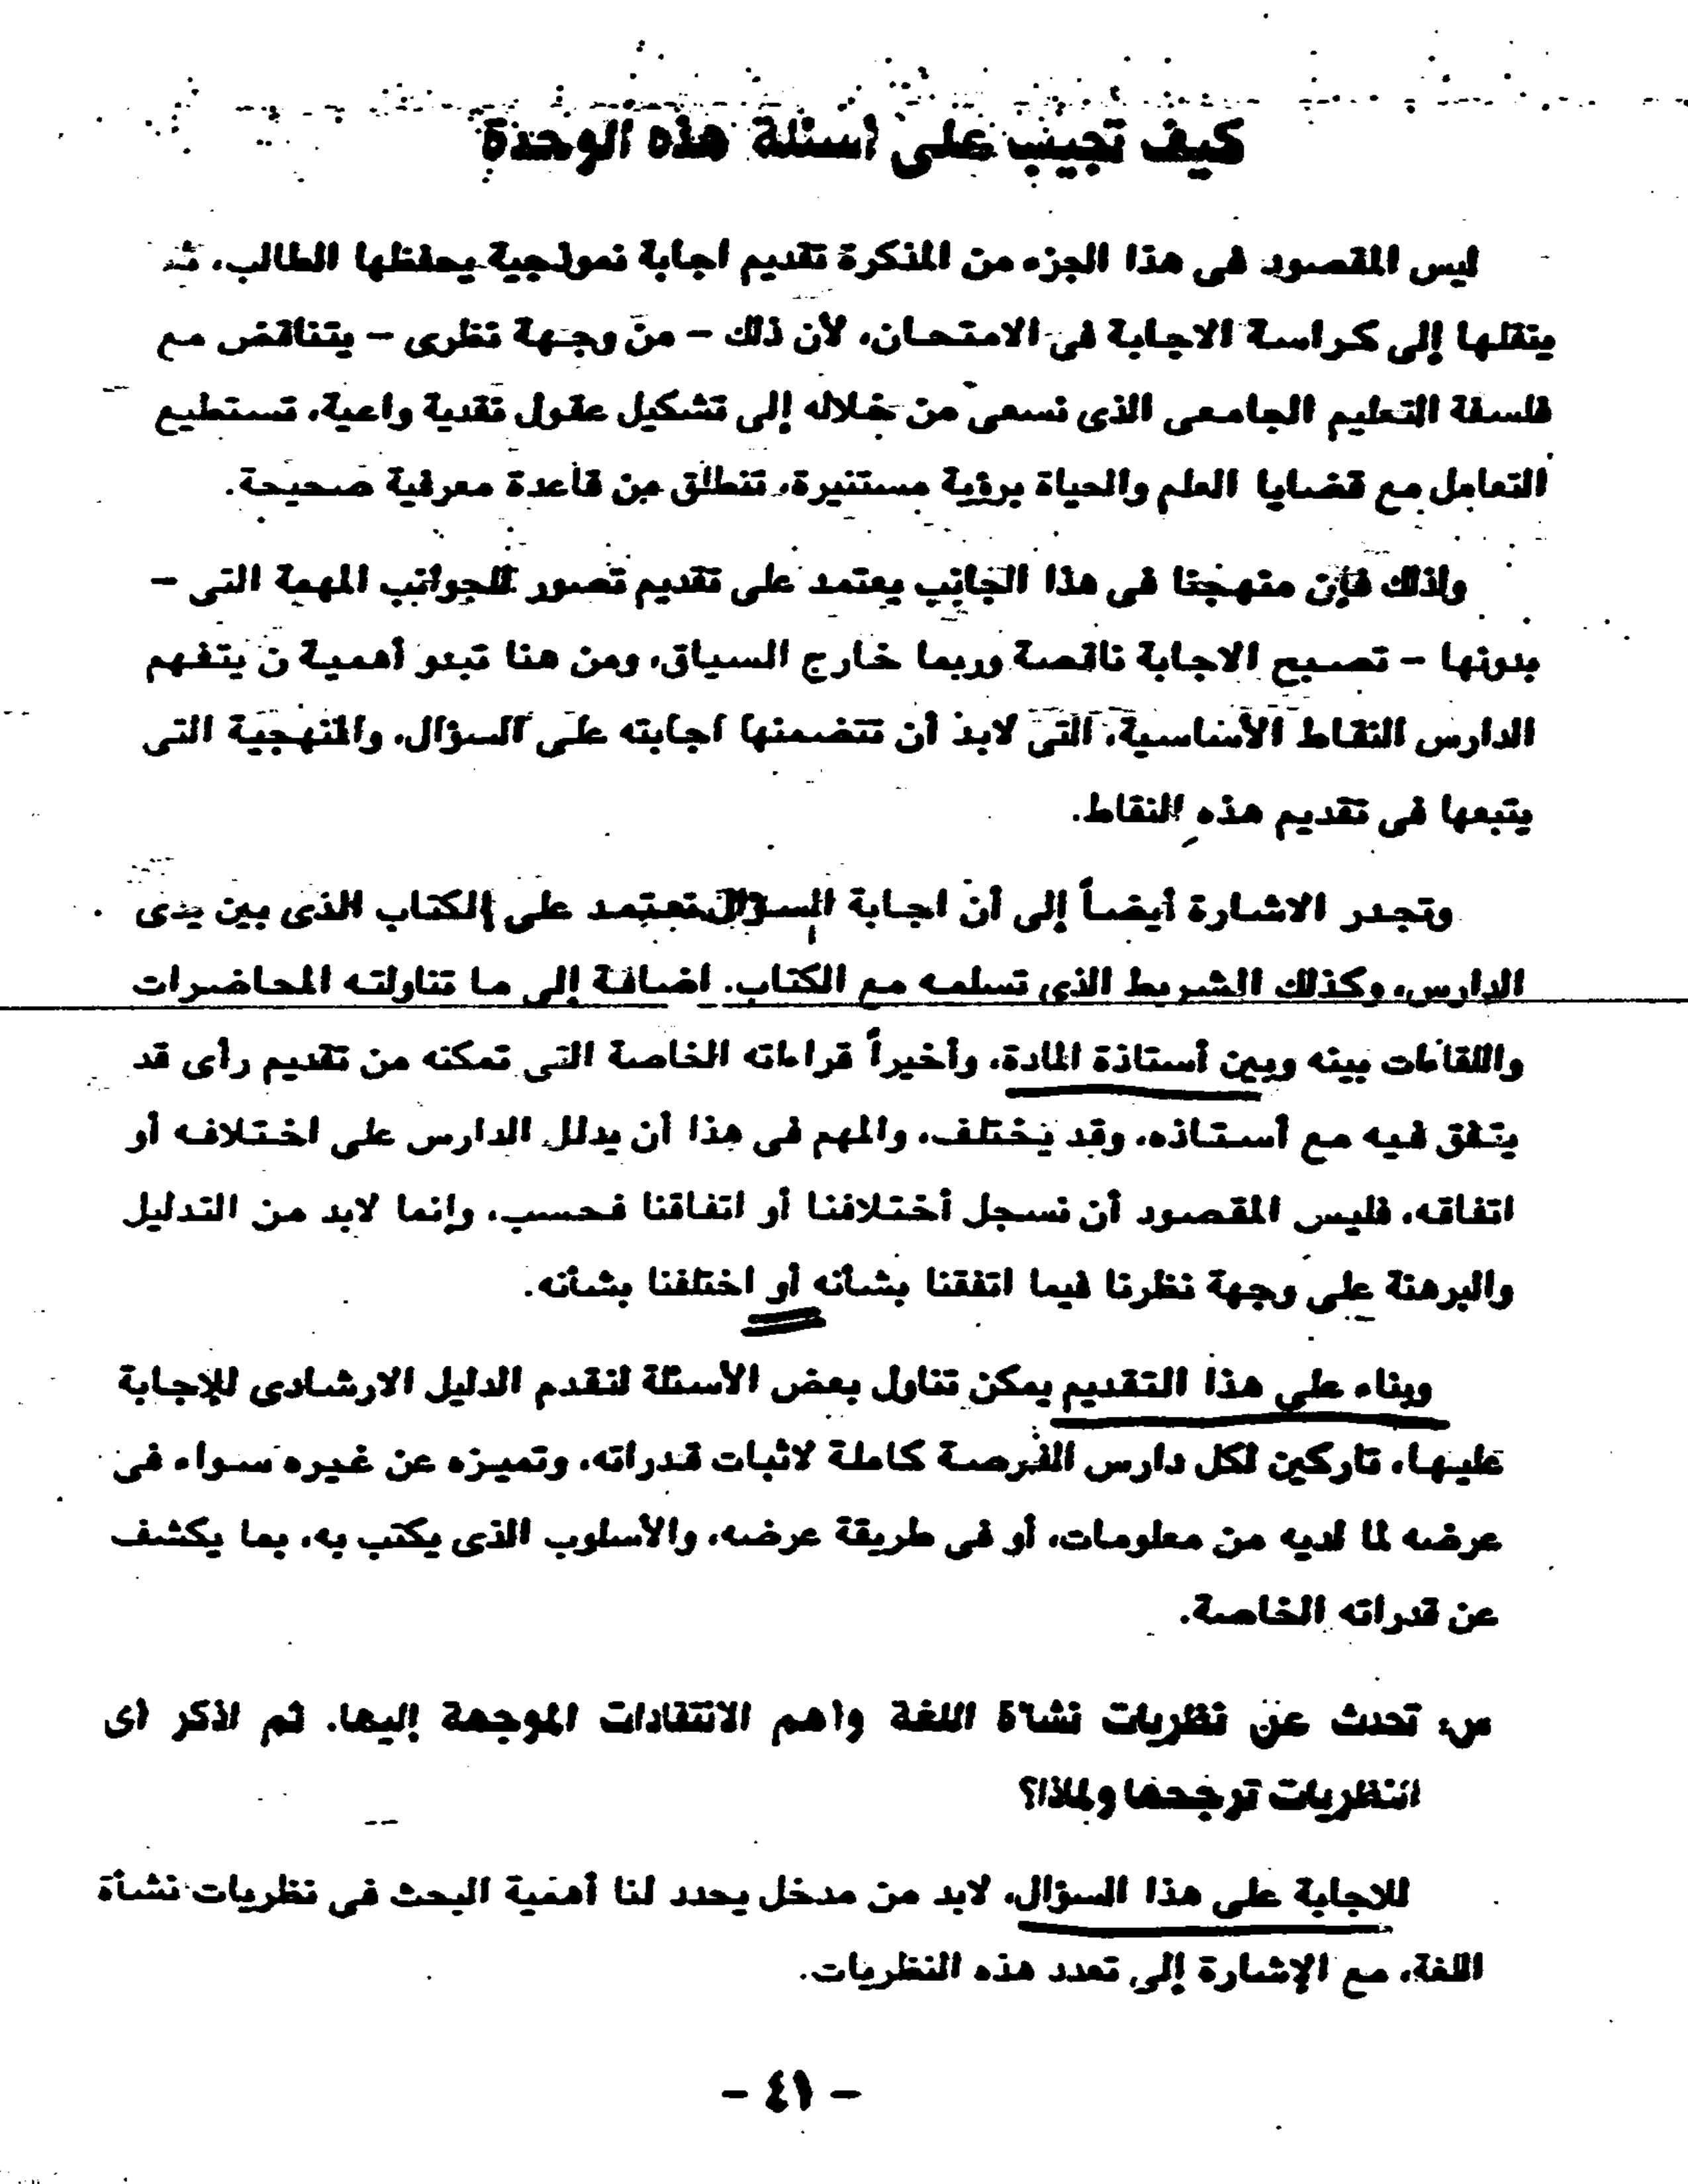 كيف تجيب على أسئلة هذه الوحدة
ليس المقصود فى هذا الجزء من المذكرة تقديم اجابة نموذجية يحفظها الطالب، ثم
ينقلها إلى كراسة الاجابة فى الامتحان، لأن ذلك - من وجهة نظرى - يتناقض مع
فلسفة التعليم الجامعى الذى نسعى من خلاله إلى تشكيل عقول نقدية واعية، تستطيع
التعامل مع قضايا العلم والحياة برؤية مستنيرة، تنطلق من قاعدة معرفية صحيحة.
ولذلك فإن منهجنا فى هذا الجانب يعتمد على تقديم تصور للجوانب المهمة التى -
بدونها - تصبح الاجابة ناقصة وربما خارج السياق، ومن هنا تبدو أهمية ن يتفهم
الدارس النقاط الأساسية، التى لابد أن تتضمنها اجابته على السؤال، والمنهجية التى
يتبعها فى تقديم هذه النقاط.
وتجدر الاشارة أيضاً إلى أن اجابة السؤال تعتمد على الكتاب الذى بين يدى
الدارس، وكذلك الشريط الذى تسلمه مع الكتاب. اضافة إلى ما تناولته المحاضرات
واللقاءات بينه وبين أستاذة المادة، وأخيراً قراءاته الخاصة التى تمكنه من تقديم رأى قد
يتفق فيه مع أستاذه، وقد يختلف، والمهم فى هذا أن يدلل الدارس على اختلافه أو
اتفاقه، فليس المقصود أن نسجل أختلافنا أو اتفاقنا فحسب، وإنما لابد من التدليل
والبرهنة على وجهة نظرنا فيما اتفقنا بشأنه أو اختلفنا بشأنه.
وبناء على هذا التقديم يمكن تناول بعض الأسئلة لنقدم الدليل الارشادى للإجابة
عليها، تاركين لكل دارس الفرصة كاملة لاثبات قدراته، وتميزه عن غيره سواء فى
عرضه لما لديه من معلومات، أو فى طريقة عرضه، والأسلوب الذى يكتب به، بما يكشف
عن قدراته الخاصة.
س: تحدث عن نظريات نشأة اللغة وأهم الانتقادات الموجهة إليها. ثم اذكر أى
النظريات ترجحها ولماذا؟
للاجابة على هذا السؤال، لابد من مدخل يحدد لنا أهمية البحث فى نظريات نشأة
اللغة، مع الإشارة إلى تعدد هذه النظريات.
- ٤١ -